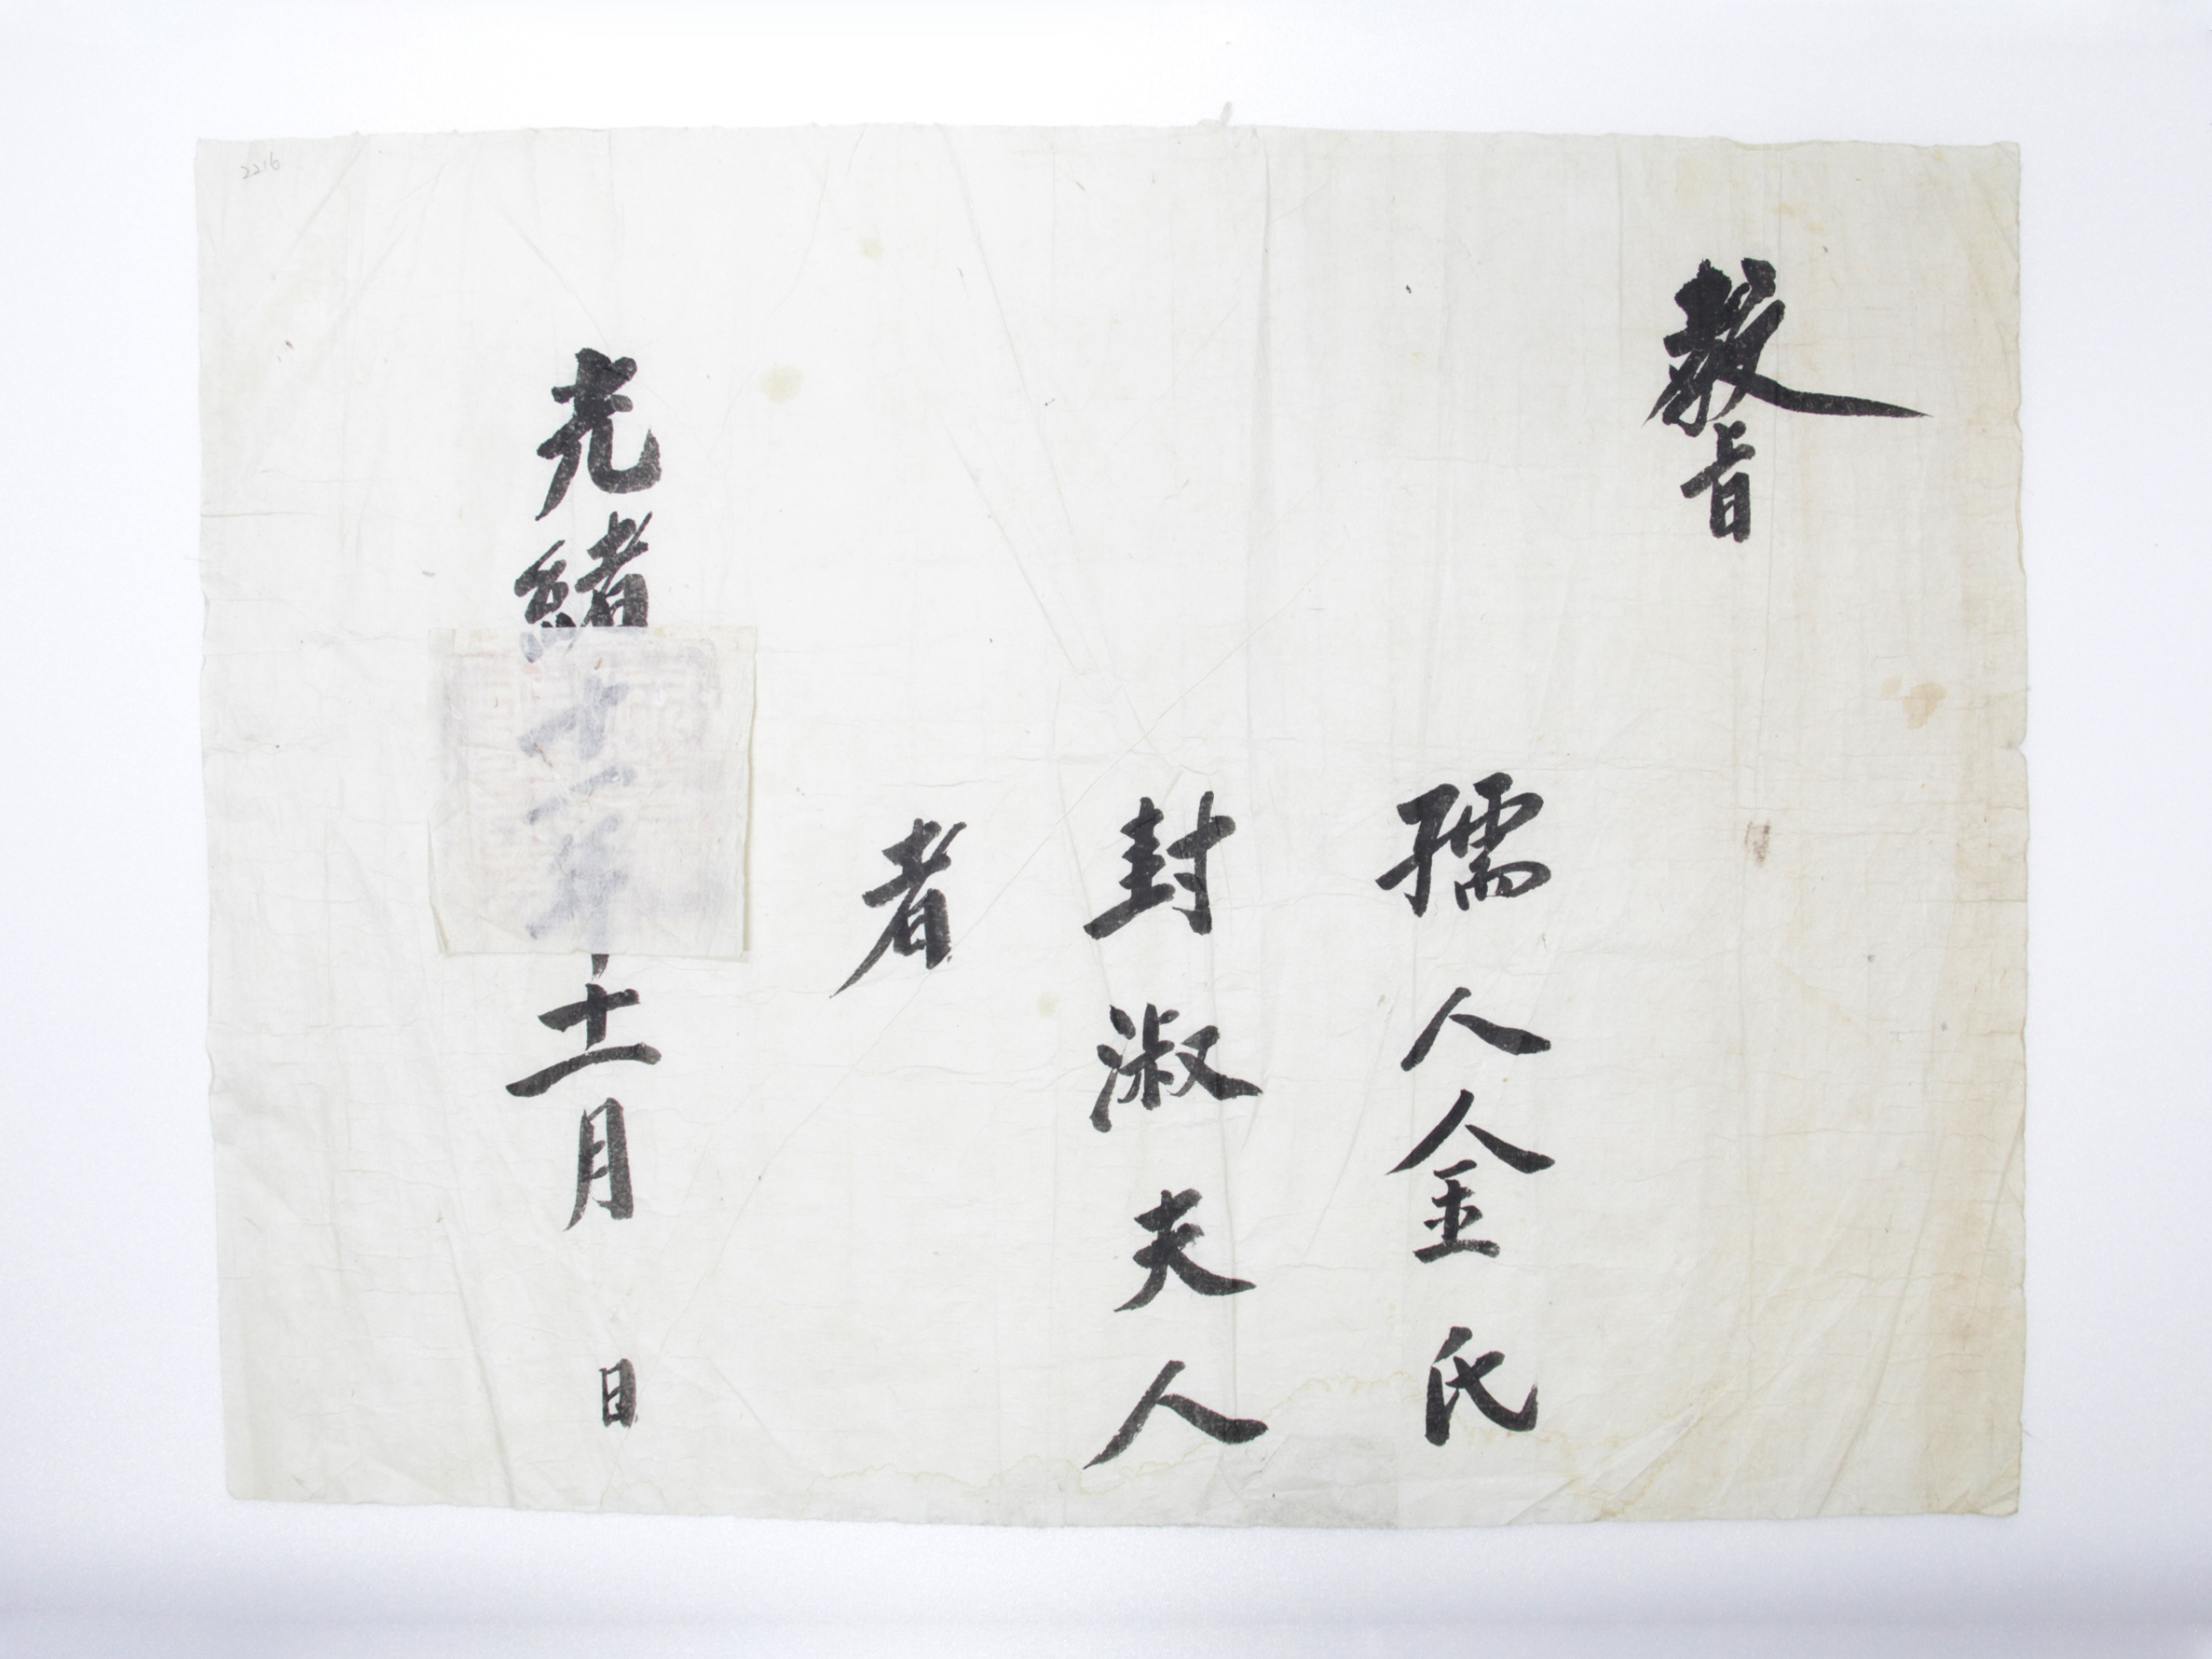 敎旨
孺人金氏
封淑夫人
者
光緖十一年十一月　日
2216